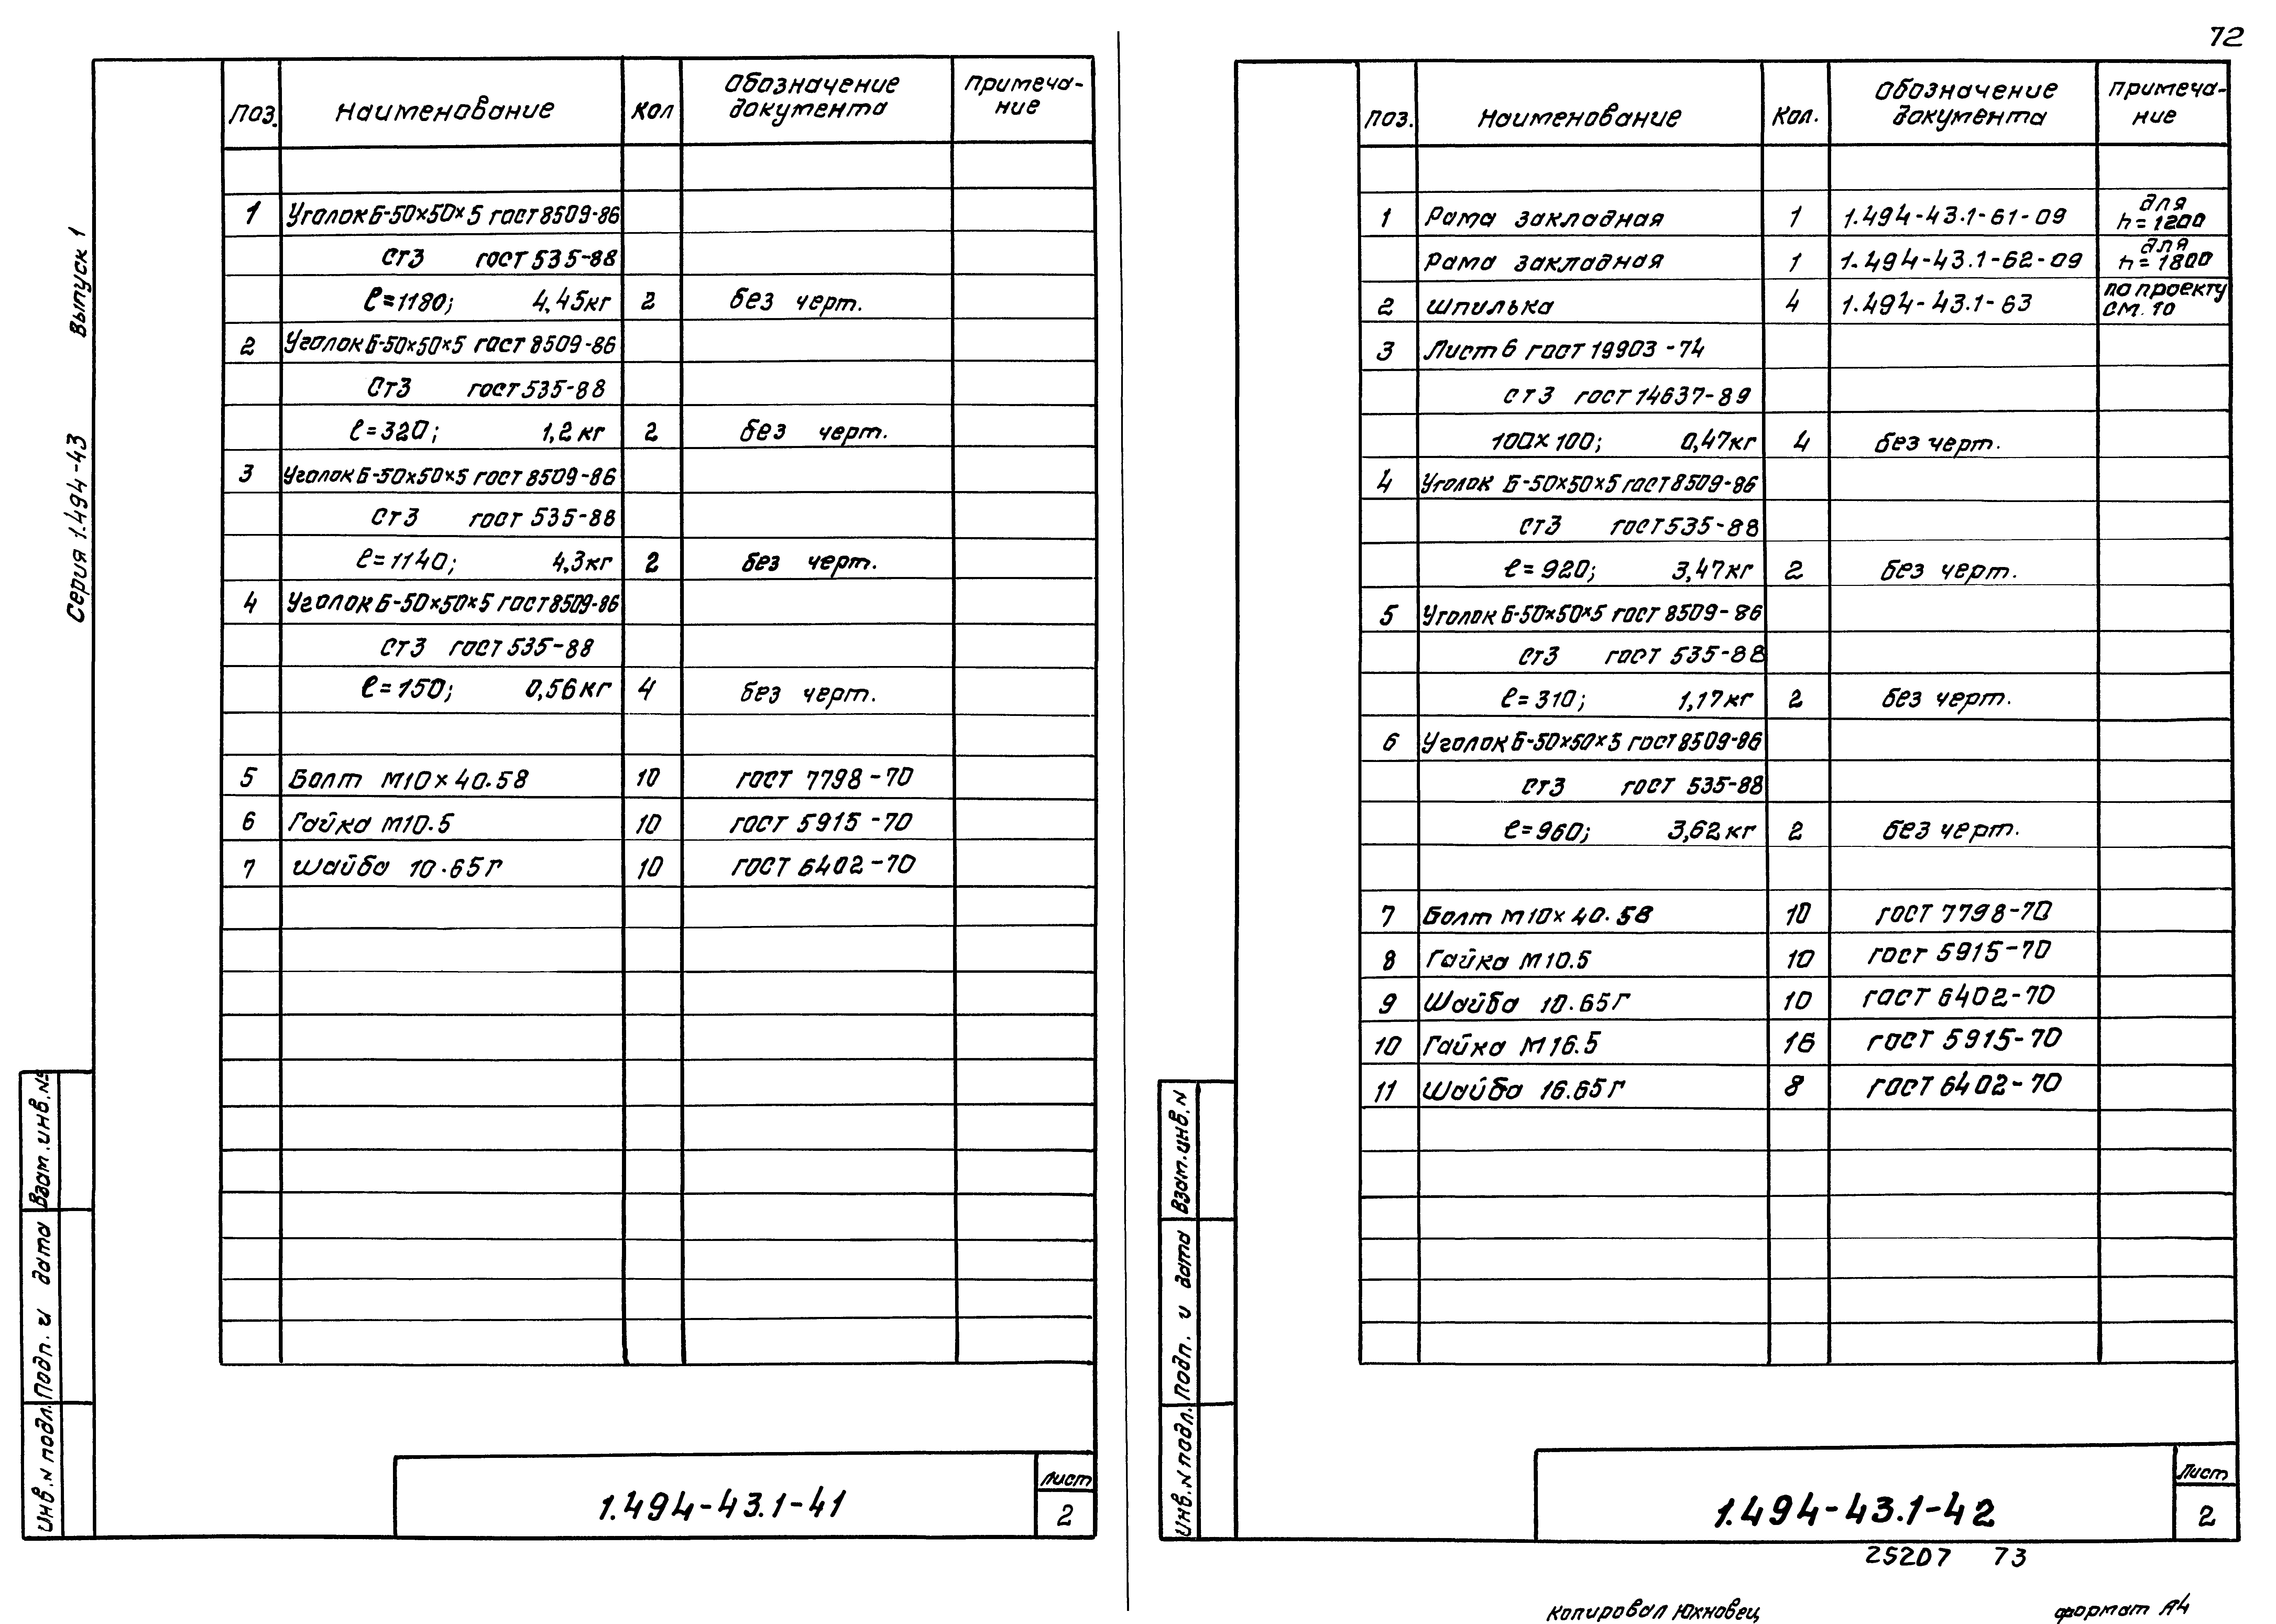 72
Серия 1.494-43 Выпуск 1
Поз. Наименование Кол Обозначение документа Примеча-ние
1 Уголок Б-50×50×5 ГОСТ 8509-86
Ст3 ГОСТ 535-88
ℓ=1180; 4,45кг 2 без черт.
2 Уголок Б-50×50×5 ГОСТ 8509-86
Ст3 ГОСТ 535-88
ℓ=320; 1,2кг 2 без черт.
3 Уголок Б-50×50×5 ГОСТ 8509-86
Ст3 ГОСТ 535-88
ℓ=1140; 4,3кг 2 без черт.
4 Уголок Б-50×50×5 ГОСТ 8509-86
Ст3 ГОСТ 535-88
ℓ=150; 0,56кг 4 без черт.
5 Болт М10×40.58 10 ГОСТ 7798-70
6 Гайка М10.5 10 ГОСТ 5915-70
7 Шайба 10.65Г 10 ГОСТ 6402-70
Взам.инв.№
Подп. и дата
Инв.N подл.
1.494-43.1-41
Лист
2
Поз. Наименование Кол. Обозначение документа Примеча-ние
1 Рама закладная 1 1.494-43.1-61-09 для h=1200
Рама закладная 1 1.494-43.1-62-09 для h=1800
2 Шпилька 4 1.494-43.1-63 по проекту см. 10
3 Лист 6 ГОСТ 19903-74
Ст3 ГОСТ 14637-89
100×100; 0,47кг 4 без черт.
4 Уголок Б-50×50×5 ГОСТ 8509-86
Ст3 ГОСТ 535-88
ℓ=920; 3,47кг 2 без черт.
5 Уголок Б-50×50×5 ГОСТ 8509-86
Ст3 ГОСТ 535-88
ℓ=310; 1,17кг 2 без черт.
6 Уголок Б-50×50×5 ГОСТ 8509-86
Ст3 ГОСТ 535-88
ℓ=960; 3,62кг 2 без черт.
7 Болт М10×40.58 10 ГОСТ 7798-70
8 Гайка М10.5 10 ГОСТ 5915-70
9 Шайба 10.65Г 10 ГОСТ 6402-70
10 Гайка М16.5 16 ГОСТ 5915-70
11 Шайба 16.65Г 8 ГОСТ 6402-70
Взам.инв.N
Подп. и дата
Инв.N подл.
1.494-43.1-42
Лист
2
25207 73
Копировал Юхновец формат А4